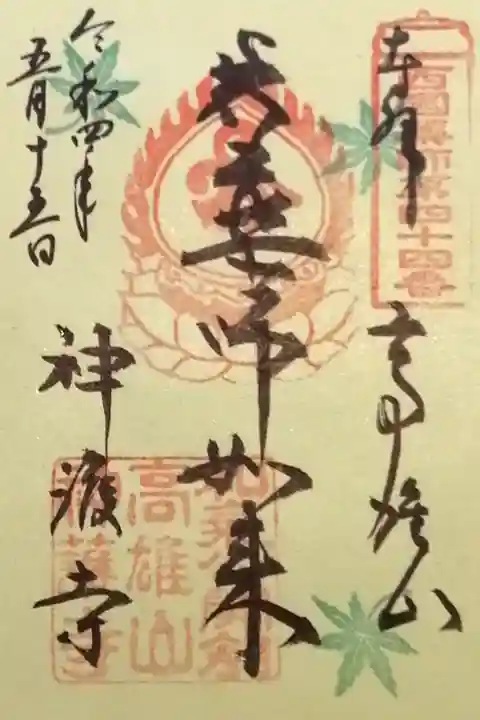 奉拝
西國藥師第四十四番
高雄山
薬師如来
高雄山
神護寺
令和四年
五月十五日
神護寺